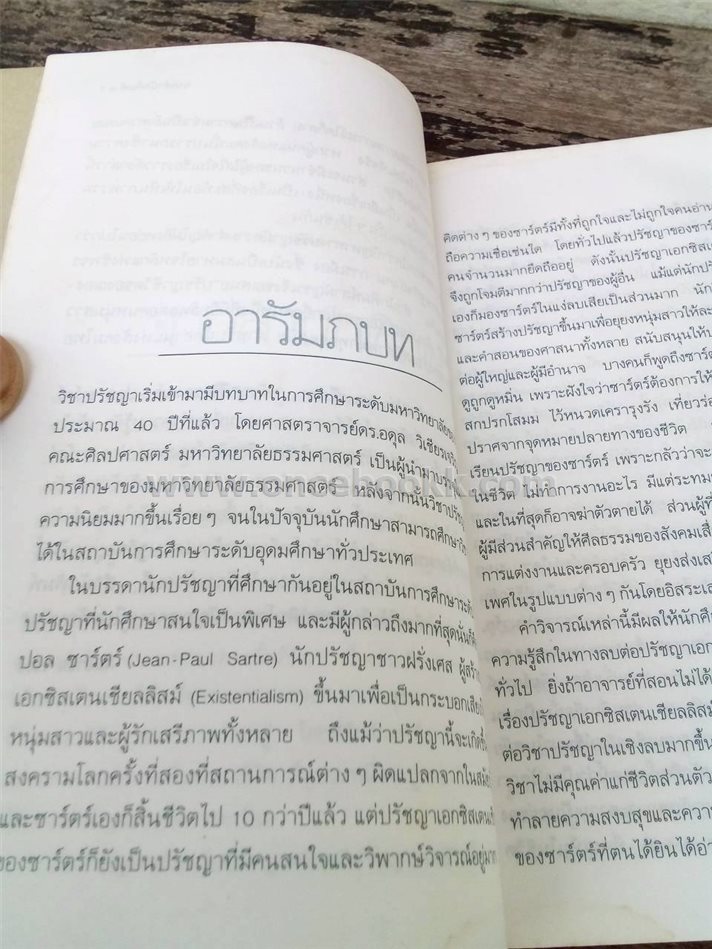 อารัมภบท
วิชาปรัชญาเริ่มเข้ามามีบทบาทในการศึกษาระดับมหาวิทยาลัย
ประมาณ 40 ปีที่แล้ว โดยศาสตราจารย์ดร.อดุล วิเชียร
คณะศิลปศาสตร์ มหาวิทยาลัยธรรมศาสตร์ เป็นผู้นำมา
การศึกษาของมหาวิทยาลัยธรรมศาสตร์ หลังจากนั้นวิชา
ความนิยมมากขึ้นเรื่อย ๆ จนในปัจจุบันนักศึกษาสามารถศึกษา
ได้ในสถาบันการศึกษาระดับอุดมศึกษาทั่วประเทศ
ในบรรดานักปรัชญาที่ศึกษากันอยู่ในสถาบันการศึกษา
ปรัชญาที่นักศึกษาสนใจเป็นพิเศษ และมีผู้กล่าวถึงมากที่สุดนั้น
ปอล ซาร์ตร์ (Jean-Paul Sartre) นักปรัชญาชาวฝรั่งเศส
เอกซิสเตนเชียลลิสม์ (Existentialism) ขึ้นมาเพื่อเป็นกระบอกเสียง
หนุ่มสาวและผู้รักเสรีภาพทั้งหลาย ถึงแม้ว่าปรัชญานี้จะ
สงครามโลกครั้งที่สองที่สถานการณ์ต่าง ๆ ผิดแปลกจากใน
และซาร์ตร์เองก็สิ้นชีวิตไป 10 กว่าปีแล้ว แต่ปรัชญา
ของซาร์ตร์ก็ยังเป็นปรัชญาที่มีคนสนใจและวิพากษ์วิจารณ์อยู่
คิดต่าง ๆ ของซาร์ตร์มีทั้งที่ถูกใจและไม่ถูกใจคนอ่าน
ถือความเชื่อเช่นใด โดยทั่วไปแล้วปรัชญาของซาร์
คนจำนวนมากยึดถืออยู่ ดังนั้นปรัชญาเอกซิส
จึงถูกโจมตีมากกว่าปรัชญาของผู้อื่น แม้แต่นัก
เองก็มองซาร์ตร์ในแง่ลบเสียเป็นส่วนมาก นัก
ซาร์ตร์สร้างปรัชญาขึ้นมาเพื่อยุยงหนุ่มสาวให้
และคำสอนของศาสนาทั้งหลาย สนับสนุนให้
ต่อผู้ใหญ่และผู้มีอำนาจ บางคนก็พูดถึงซาร์ต
ดูถูกดูหมิ่น เพราะฝังใจว่าซาร์ตร์ต้องการให้
สกปรกโสมม ไว้หนวดเครารุงรัง เที่ยว
ปราศจากจุดหมายปลายทางของชีวิต
เรียนปรัชญาของซาร์ตร์ เพราะกลัวว่าจะ
ในชีวิต ไม่ทำการงานอะไร มีแต่ระทม
และในที่สุดก็อาจฆ่าตัวตายได้ ส่วนผู้ที่
ผู้มีส่วนสำคัญให้ศีลธรรมของสังคมเสื่
การแต่งงานและครอบครัว ยุยงส่งเส
เพศในรูปแบบต่าง ๆ กันโดยอิสระเส
คำวิจารณ์เหล่านี้มีผลให้นักศึ
ความรู้สึกในทางลบต่อปรัชญาเอก
ทั่วไป ยิ่งถ้าอาจารย์ที่สอนไม่ได้
เรื่องปรัชญาเอกซิสเตนเชียลลิสม์
ต่อวิชาปรัชญาในเชิงลบมากขึ้น
วิชาไม่มีคุณค่าแก่ชีวิตส่วนตัว
ทำลายความสงบสุขและความ
ของซาร์ตร์ที่ตนได้ยินได้อ่า